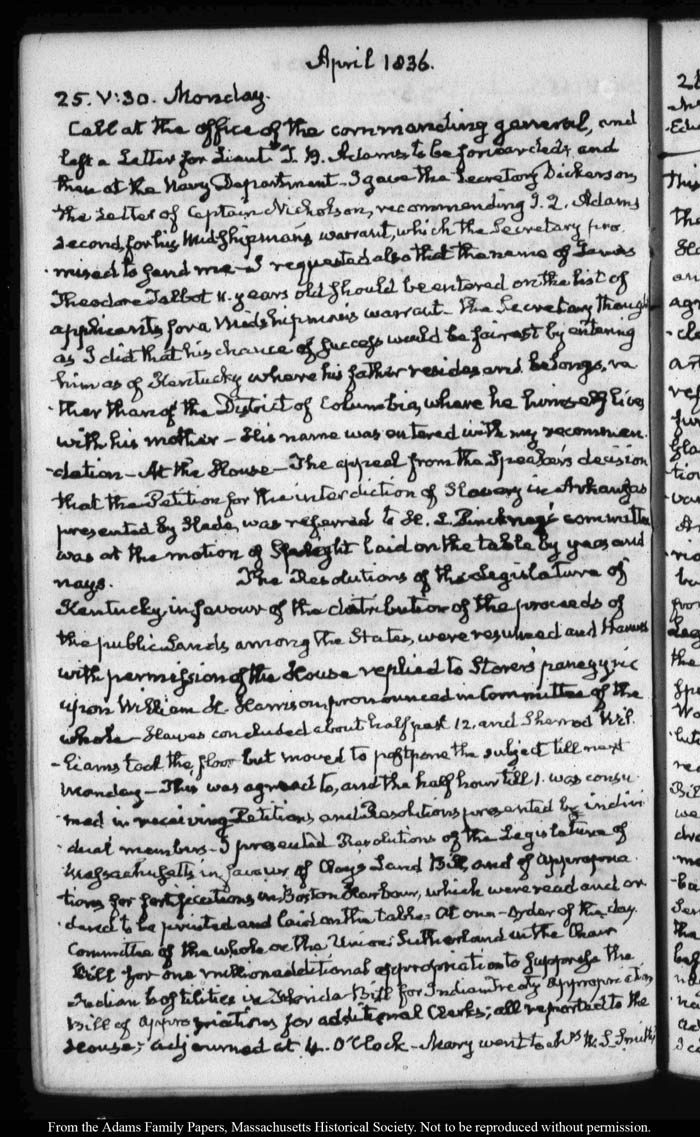 April 1836.
25. V:30. Monday.
Call at the office of the commanding general, and
left a Letter for Lieut. T. B. Adams to be forwarded; and
then at the Navy Department. I gave the Secretary Dickerson,
the Letter of Captain Nicholson, recommending J. Q. Adams
second, for his Midshipman's warrant, which the Secretary pro-
mised to send me. I requested also that the name of
Theodore Talbot 11. years old should be entered on the list of
applicants for a Midshipman's warrant. The Secretary thought
as I did that his chance of success would be fairest by entering
him as of Kentucky where his father resides and belongs, ra-
ther than of the District of Columbia, where he himself lives
with his mother — His name was entered with my recommen-
dation — At the House — The appeal from the Speaker's decision
that the Petition for the interdiction of Slavery in Arkansas
presented by Slade, was referred to H. L. Pinckney's committee
was at the motion of Speight laid on the table by yeas and
nays. The Resolutions of the Legislature of
Kentucky, in favour of the distribution of the proceeds of
the public Lands among the States, were resumed and Hawes
with permission of the House replied to Storer's panegyric
upon William H. Harrison pronounced in Committee of the
whole — Hawes concluded about half past 12. and Sherrod Wil-
liams took the floor but moved to postpone the subject till next
Monday — This was agreed to, and the half hour till 1. was consu-
med in receiving Petitions and Resolutions presented by indivi-
dual members. I presented Resolutions of the Legislature of
Massachusetts in favour of Clay's Land Bill, and of appropria-
tions for fortifications in Boston Harbour, which were read and or-
dered to be printed and laid on the table. At one — Order of the day.
Committee of the whole on the Union: Sutherland in the Chair
Bill for one million additional appropriation to suppress the
Indian hostilities in Florida — Bill for Indian Treaty appropriation
Bill of appropriations for additional Clerks; all reported to the
House; adjourned at 4. O'Clock — Mary went to Smith's
From the Adams Family Papers, Massachusetts Historical Society. Not to be reproduced without permission.